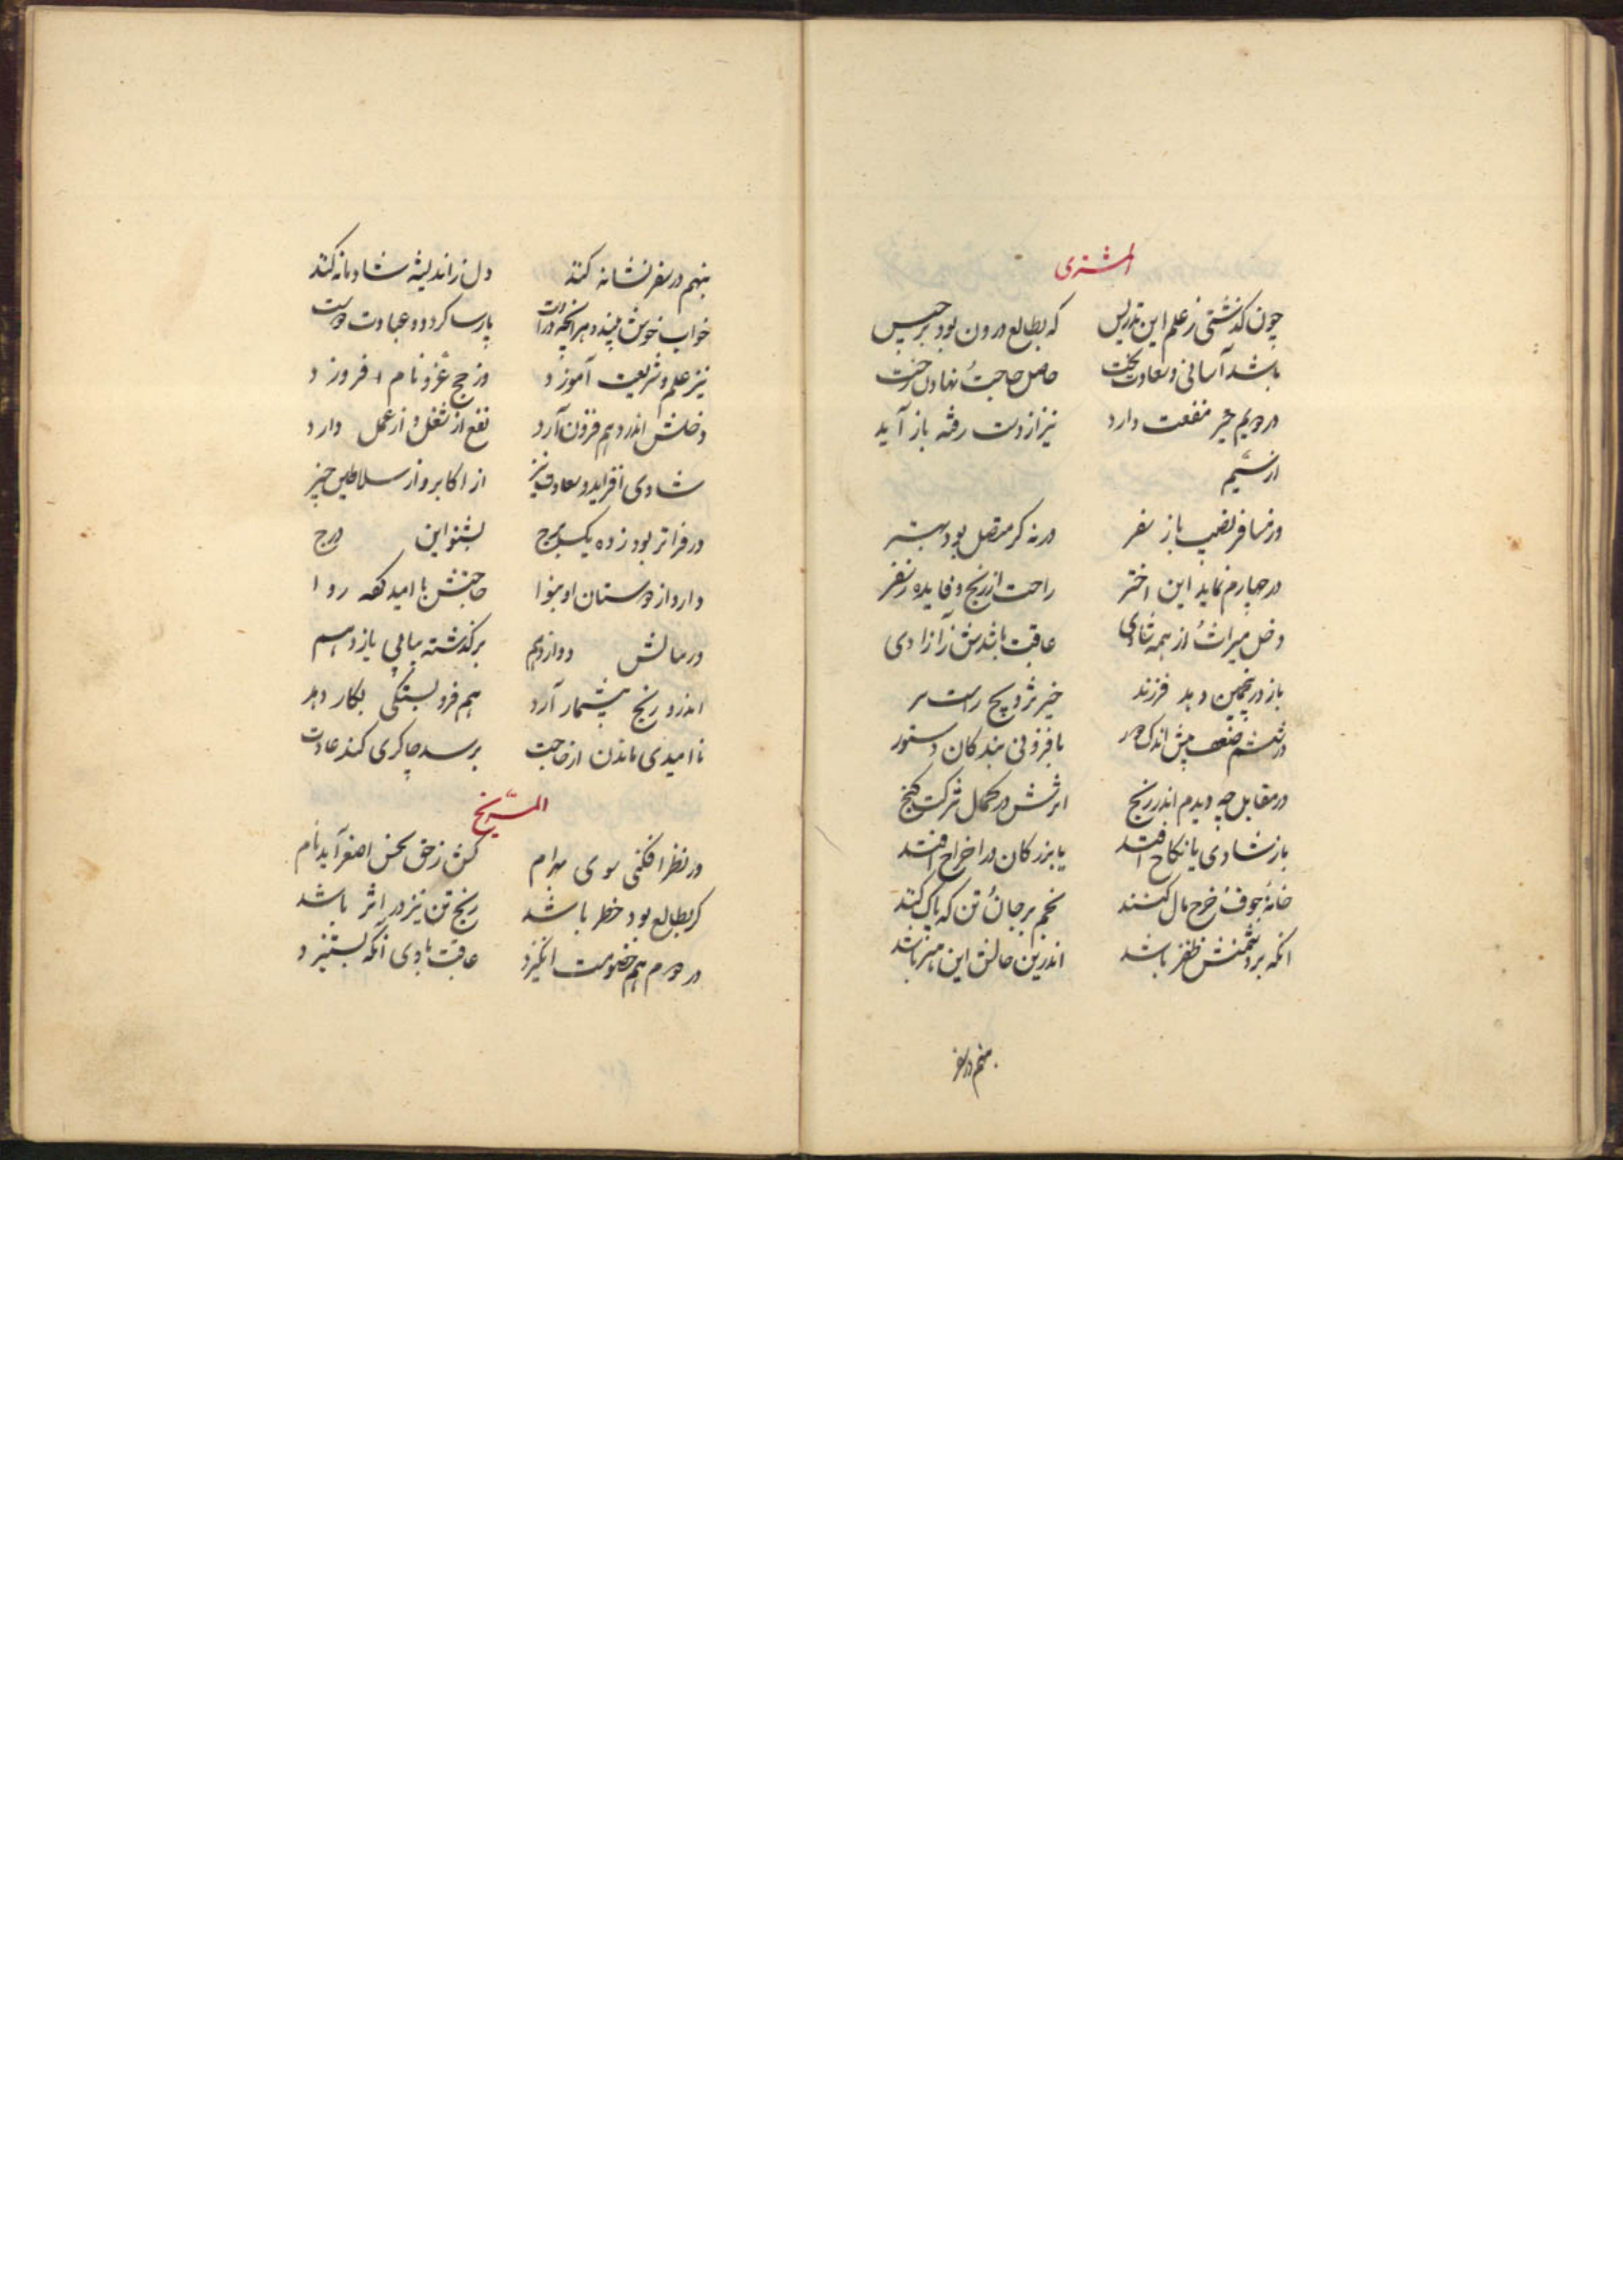 المشتری
چون گذشتی ز علم این تدریس که بطالع درون بود برجیس
باشد آسانی و سعادت بخت حاصل حاجت
در دویم خیر منفعت دارد نیز از دست رفته باز آید
از سیم
ور مسافر نصیب باز سفر ورنه کر متصل بود بهتر
در چهارم نماید این اختر راحت از رنج و فایده ز سفر
دخل میراث از همه شادی عاقبت باشدش ز آزادی
باز در پنجمین دهد فرزند خیر
در ششم ضعف بیش اندک با فزونی بندکان دستور
در مقابل چه دیدم اندر رنج اثرش در کمال شرکت کنج
باز شادی یا نکاح افتد یا بزرکان ورا خراج افتد
خانه خوف خرج مال کنند نجم بر جان تن که پاک کند
انکه بر دشمنش ظفر باشد اندرین حالش این هنر باشد
نهم در سفر
نهم در سفر نشانه کند دل ز اندیشه شادمانه کند
خواب خوش بیند و هر آنچه در پارسا کردد و عبادت
نیز علم و شریعت آموزد وز حج و غزو نام افروزد
دخلش اندر دهم فزون آرد نفع از شغل و از عمل دارد
شادی افزاید و سعادت نیز از اکابر و از سلاطین چیز
ور فراتر بود ز ده یک برج بشنو این درج
دارد از دوستان او بنوا حاجتش با امید کفه روا
ور ببالش دوازدهم برگذشته بپای یازدهم
اندرو رنج بیشمار آرد هم فرو بستگی بکار دهد
نا امیدی ماندن از حاجت برسد چاکری کند عادت
المریخ
ور نظر افکنی سوی بهرام کش ز حق نحس اصغر آید نام
کر بطالع بود خطر باشد رنج تن نیز در اثر باشد
در دوم هم خصومت انگیزد عاقبت با وی آنکه بستیزد